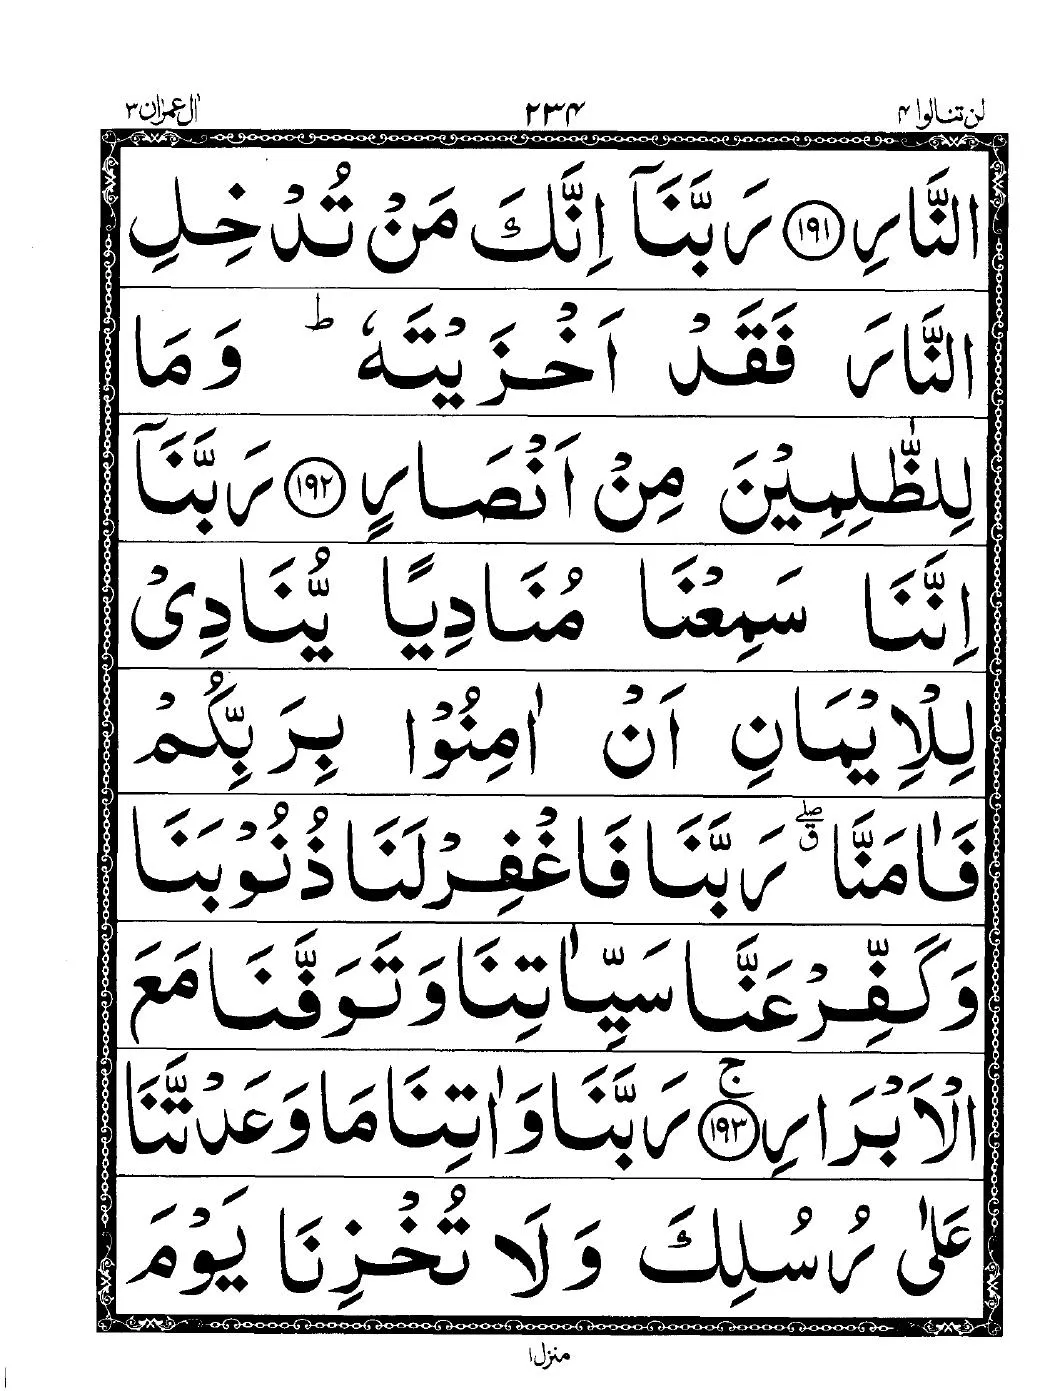 لن تنالوا ۴ ۲۳۴ اٰل عمرٰن ۳
النَّارِ ۝۱۹۱ رَبَّنَاۤ اِنَّكَ مَنْ تُدْخِلِ
النَّارَ فَقَدْ اَخْزَيْتَهٗ ؕ وَمَا
لِلظّٰلِمِيْنَ مِنْ اَنْصَارٍ ۝۱۹۲ رَبَّنَاۤ
اِنَّنَا سَمِعْنَا مُنَادِيًا يُّنَادِىْ
لِلْاِيْمَانِ اَنْ اٰمِنُوْا بِرَبِّكُمْ
فَاٰمَنَّا ۖۗ رَبَّنَا فَاغْفِرْ لَنَا ذُنُوْبَنَا
وَكَفِّرْ عَنَّا سَيِّاٰتِنَا وَتَوَفَّنَا مَعَ
الْاَبْرَارِ ۚ۝۱۹۳ رَبَّنَا وَاٰتِنَا مَا وَعَدْتَّنَا
عَلٰى رُسُلِكَ وَلَا تُخْزِنَا يَوْمَ
منزل ۱